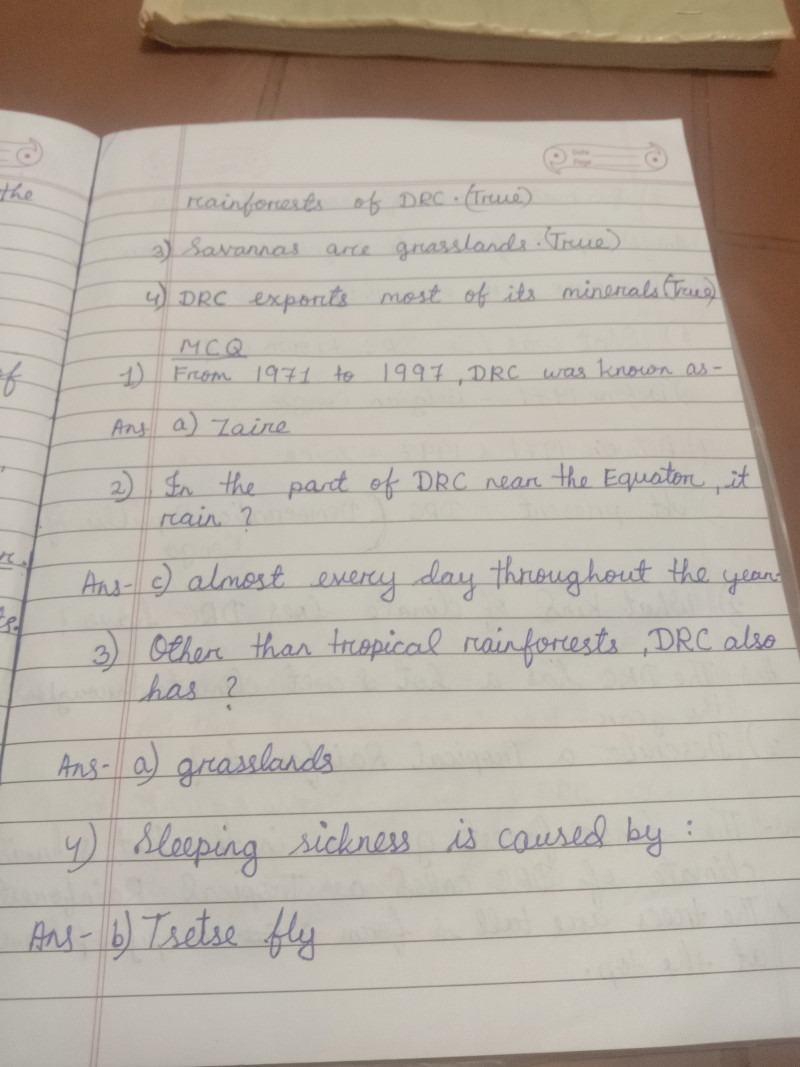 the
of
Date
Page
rainforests of DRC. (True)
3) Savannas are grasslands. (True)
4) DRC exports most of its minerals (True)
MCQ
1) From 1971 to 1997, DRC was known as-
Ans a) Zaire
2) In the part of DRC near the Equator, it
rain ?
Ans- c) almost every day throughout the year.
3) Other than tropical rainforests, DRC also
has ?
Ans- a) grasslands
4) Sleeping sickness is caused by :
Ans- b) Tsetse fly